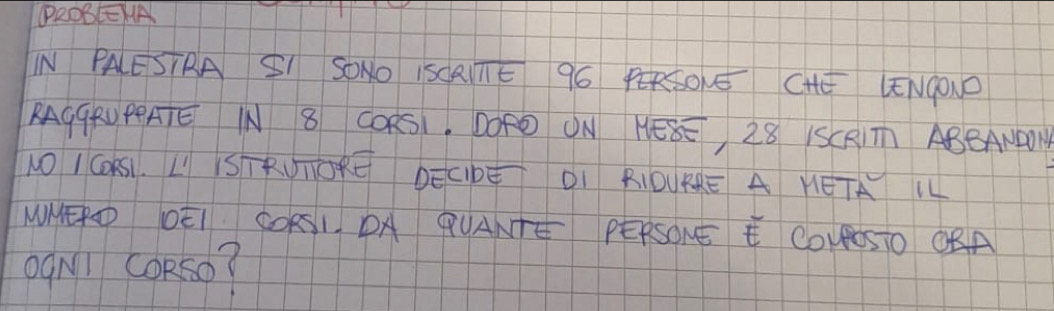 PROBLEMA
IN PALESTRA SI SONO ISCRITTE 96 PERSONE CHE VENGONO
RAGGRUPPATE IN 8 CORSI. DOPO UN MESE, 28 ISCRITTI ABBANDONA
NO I CORSI. L'ISTRUTTORE DECIDE DI RIDURRE A METÀ IL
NUMERO DEI CORSI. DA QUANTE PERSONE È COMPOSTO ORA
OGNI CORSO?